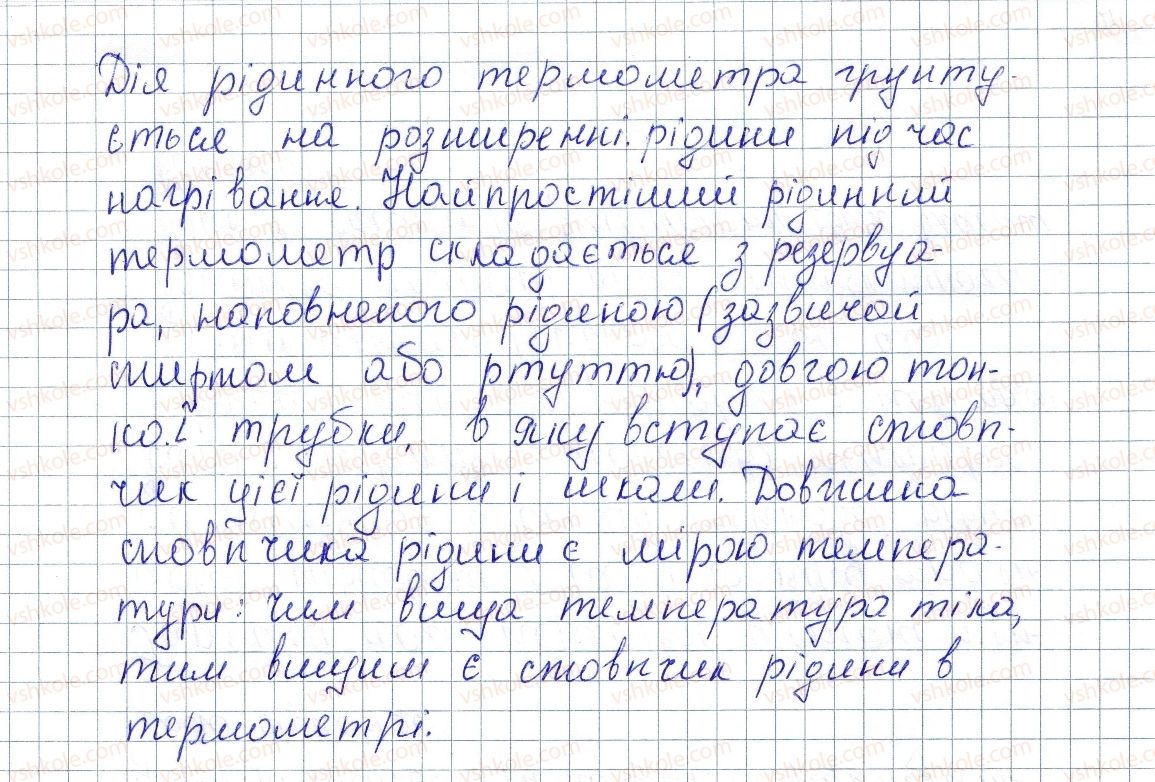 Дія рідинного термометра грунту-
ється на розширенні рідини під час
нагрівання. Найпростіший рідинний
термометр складається з резервуа-
ра, наповненого рідиною (зазвичай
спиртом або ртуттю), довгою тон-
кої трубки, в яку вступає стовп-
чик цієї рідини і шкали. Довжина
стовпчика рідини є мірою темпера-
тури: чим вища температура тіла,
тим вищим є стовпчик рідини в
термометрі.